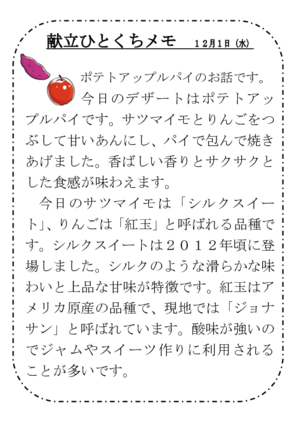 献立ひとくちメモ　12月1日(水)
ポテトアップルパイのお話です。
今日のデザートはポテトアッ
プルパイです。サツマイモとりんごをつ
ぶして甘いあんにし、パイで包んで焼き
あげました。香ばしい香りとサクサクと
した食感が味わえます。
今日のサツマイモは「シルクスイー
ト」、りんごは「紅玉」と呼ばれる品種で
す。シルクスイートは２０１２年頃に登
場しました。シルクのような滑らかな味
わいと上品な甘味が特徴です。紅玉はア
メリカ原産の品種で、現地では「ジョナ
サン」と呼ばれています。酸味が強いの
でジャムやスイーツ作りに利用される
ことが多いです。